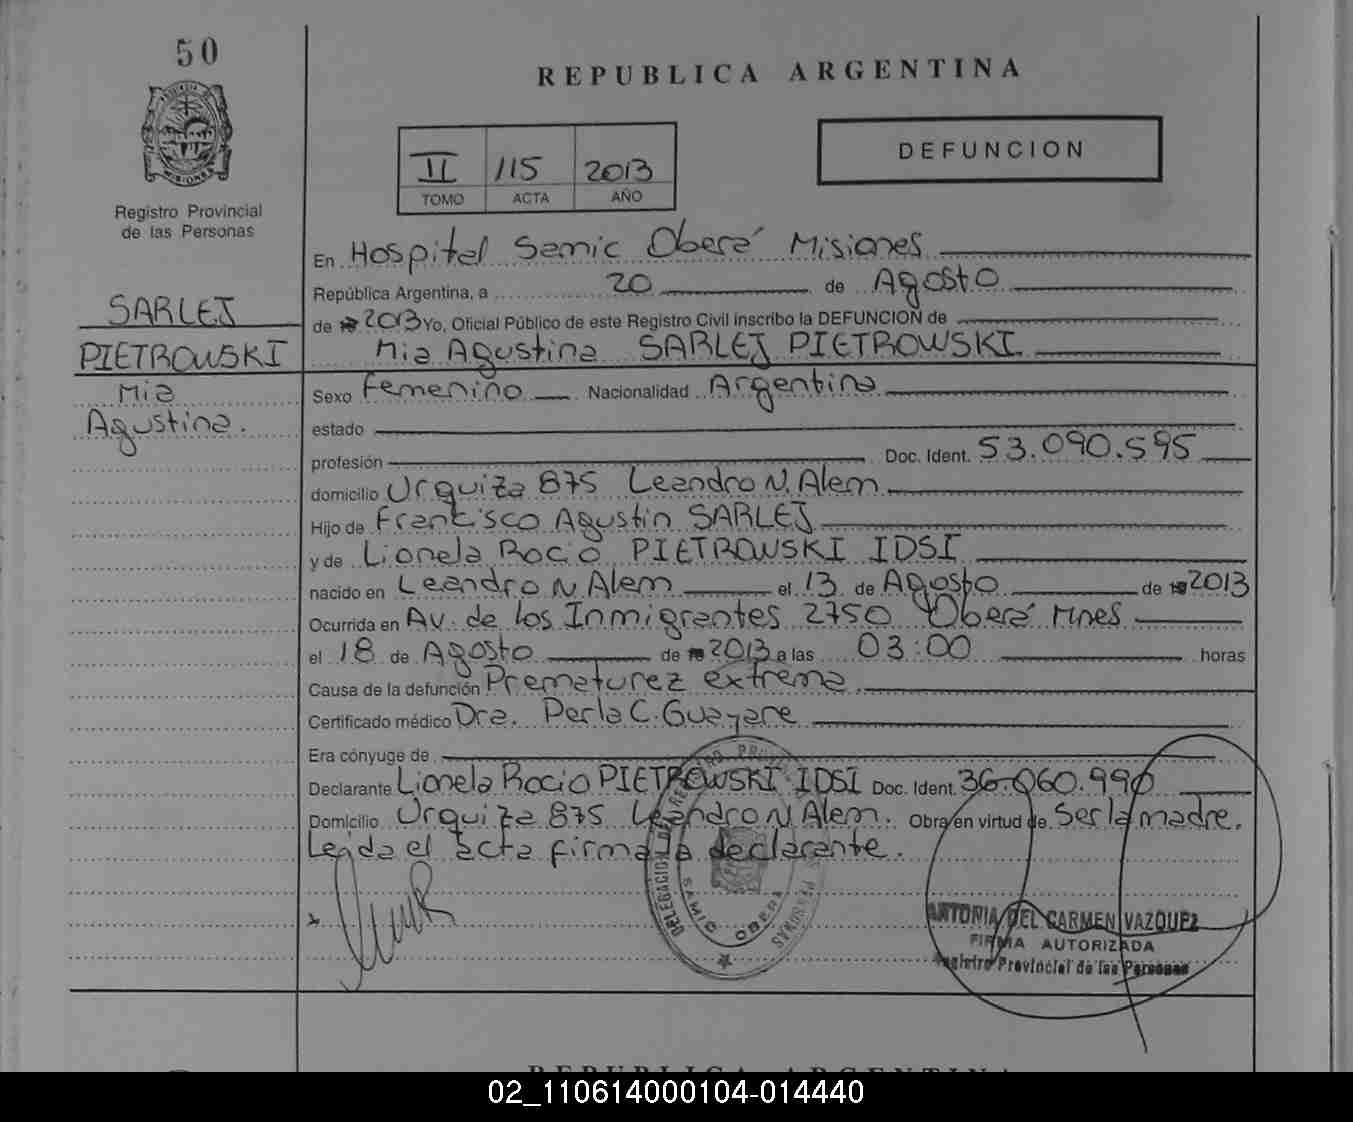 50
REPUBLICA ARGENTINA
II 115 2013
TOMO ACTA AÑO
DEFUNCION
MISIONES
Registro Provincial
de las Personas
SARLEJ
PIETROWSKI
Mia
Agustina.
En Hospital Samic Oberá Misiones
República Argentina, a 20 de Agosto
de 2013 Yo, Oficial Público de este Registro Civil inscribo la DEFUNCION de
Mia Agustina SARLEJ PIETROWSKI
Sexo Femenino Nacionalidad Argentina
estado
profesión Doc. Ident. 53.090.595
domicilio Urquiza 875 Leandro N. Alem
Hijo de Francisco Agustin SARLEJ
y de Lionela Rocio PIETROWSKI IDSI
nacido en Leandro N. Alem el 13 de Agosto de 2013
Ocurrida en Av. de los Inmigrantes 2750 Oberá Mnes
el 18 de Agosto de 2013 a las 03:00 horas
Causa de la defunción Prematurez extrema
Certificado médico Dra. Perla C.
Era cónyuge de
Declarante Lionela Rocio PIETROWSKI IDSI Doc. Ident. 36.060.990
Domicilio Urquiza 875 Leandro N. Alem. Obra en virtud de Ser la madre.
Leida el acta firma la declarante.
DELEGACION SAMIC OBERA
ANTONIA DEL CARMEN VAZQUEZ
FIRMA AUTORIZADA
Registro Provincial de las Personas
REPUBLICA ARGENTINA
02_110614000104-014440